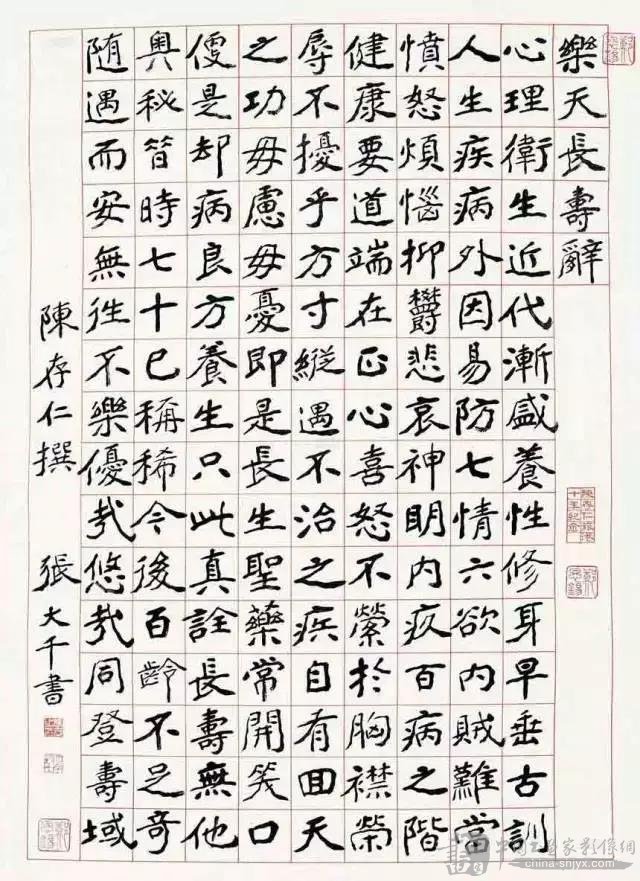 樂天長壽辭
心理衛生近代漸盛養性修身早垂古訓
人生疾病外因易防七情六欲内賊難當
憤怒煩惱抑欝悲哀神明内疚百病之階
健康要道端在正心喜怒不縈於胸襟榮
辱不擾乎方寸縱遇不治之疾自有回天
之功毋慮毋憂即是長生聖藥常開笑口
便是却病良方養生只此真詮長壽無他
奧秘昔時七十已稱稀今後百齡不足奇
随遇而安無往不樂優哉悠哉同登壽域
陳存仁撰 張大千書
china-snjyx.com